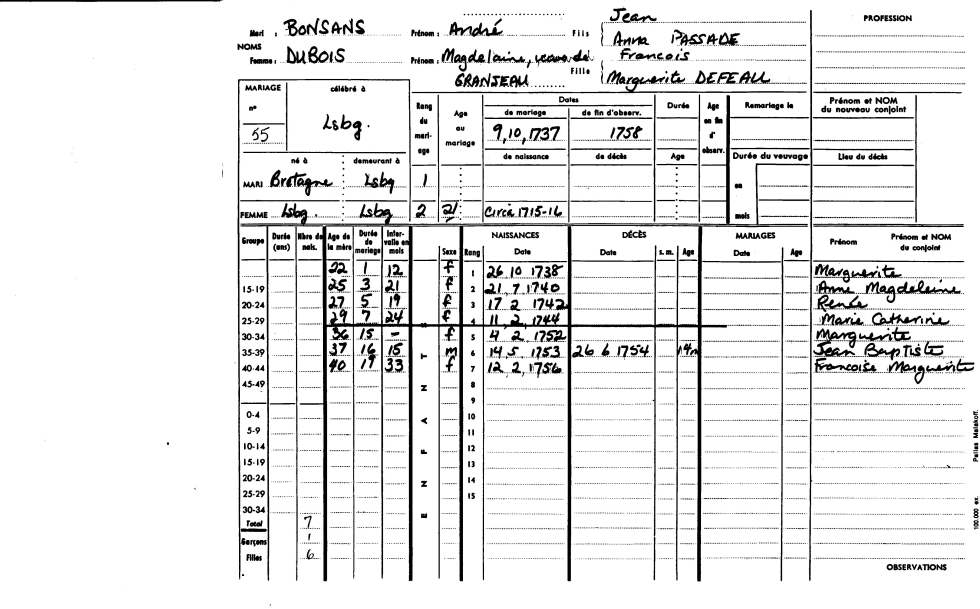 Mari : BONSANS Prénom : André Fils Jean
Anna PASSADE
NOMS
Femme : DUBOIS Prénom : Magdelaine, veuve de Fille Francois
GRANJEAU Marguerite DEFEAU
PROFESSION
MARIAGE célébré à
n° 55 Lsbg.
Rang du mariage Age au mariage Dates Durée Age en fin d'observ. Remariage le Prénom et NOM du nouveau conjoint
de mariage de fin d'observ.
9,10,1737 1758
né à demeurant à de naissance de décès Age Durée du veuvage Lieu du décès
MARI Bretagne Lsbg 1 en
FEMME Lsbg. Lsbg 2 21 Circa 1715-16 mois
Groupe Durée (ans) Nbre de nais. Age de la mère Durée de mariage Intervalle en mois ENFANTS Sexe Rang NAISSANCES Date DÉCÈS Date s. m. Age MARIAGES Date Age Prénom Prénom et NOM du conjoint
22 1 12 f 1 26 10 1738 Marguerite
15-19 25 3 21 f 2 21 7 1740 Anne Magdeleine
20-24 27 5 19 f 3 17 2 1742 Renée
25-29 29 7 24 f 4 11 2 1744 Marie Catherine
30-34 36 15 - f 5 4 2 1752 Marguerite
35-39 37 16 15 m 6 14 5 1753 26 6 1754 14m Jean Baptiste
40-44 40 19 33 f 7 12 2 1756 Francoise Marguerite
45-49 8
9
0-4 10
5-9 11
10-14 12
15-19 13
20-24 14
25-29 15
30-34
Total 7
Garçons 1
Filles 6
OBSERVATIONS
100.000 ex.